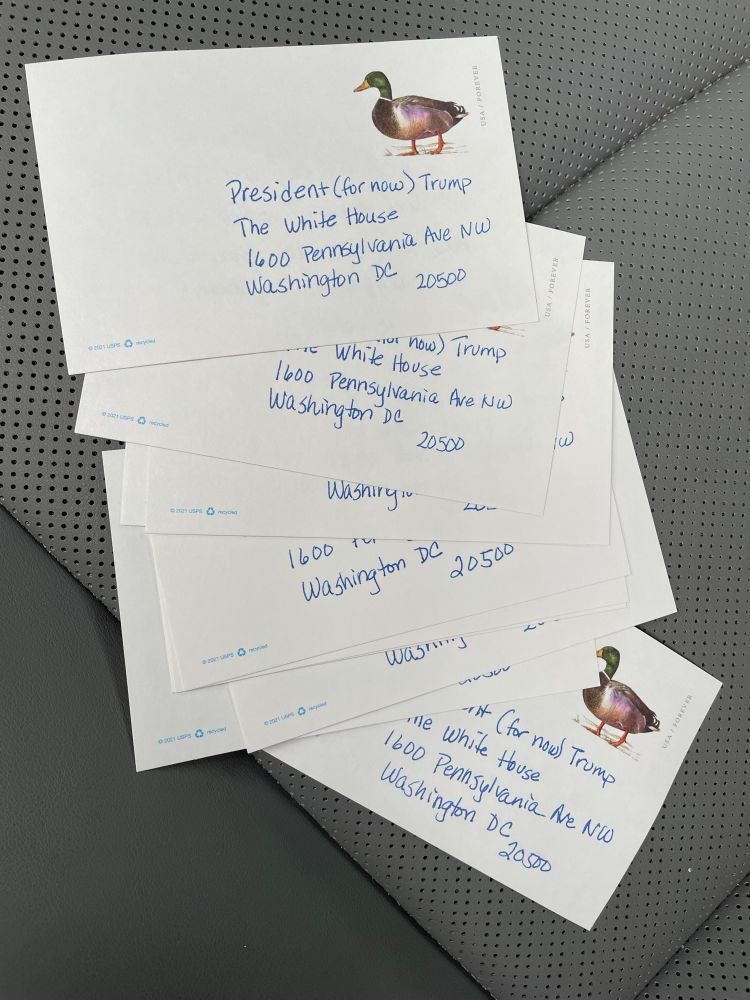 USA / FOREVER
President (for now) Trump
The White House
1600 Pennsylvania Ave NW
Washington DC 20500
© 2021 USPS recycled
USA / FOREVER
now) Trump
White House
1600 Pennsylvania Ave NW
Washington DC
20500
© 2021 USPS recycled
USA / FOREVER
© 2021 USPS recycled
1600
Washington DC 20500
© 2021 USPS recycled
© 2021 USPS recycled
© 2021 USPS recycled
USA / FOREVER
(for now) Trump
White House
1600 Pennsylvania Ave NW
Washington DC
20500